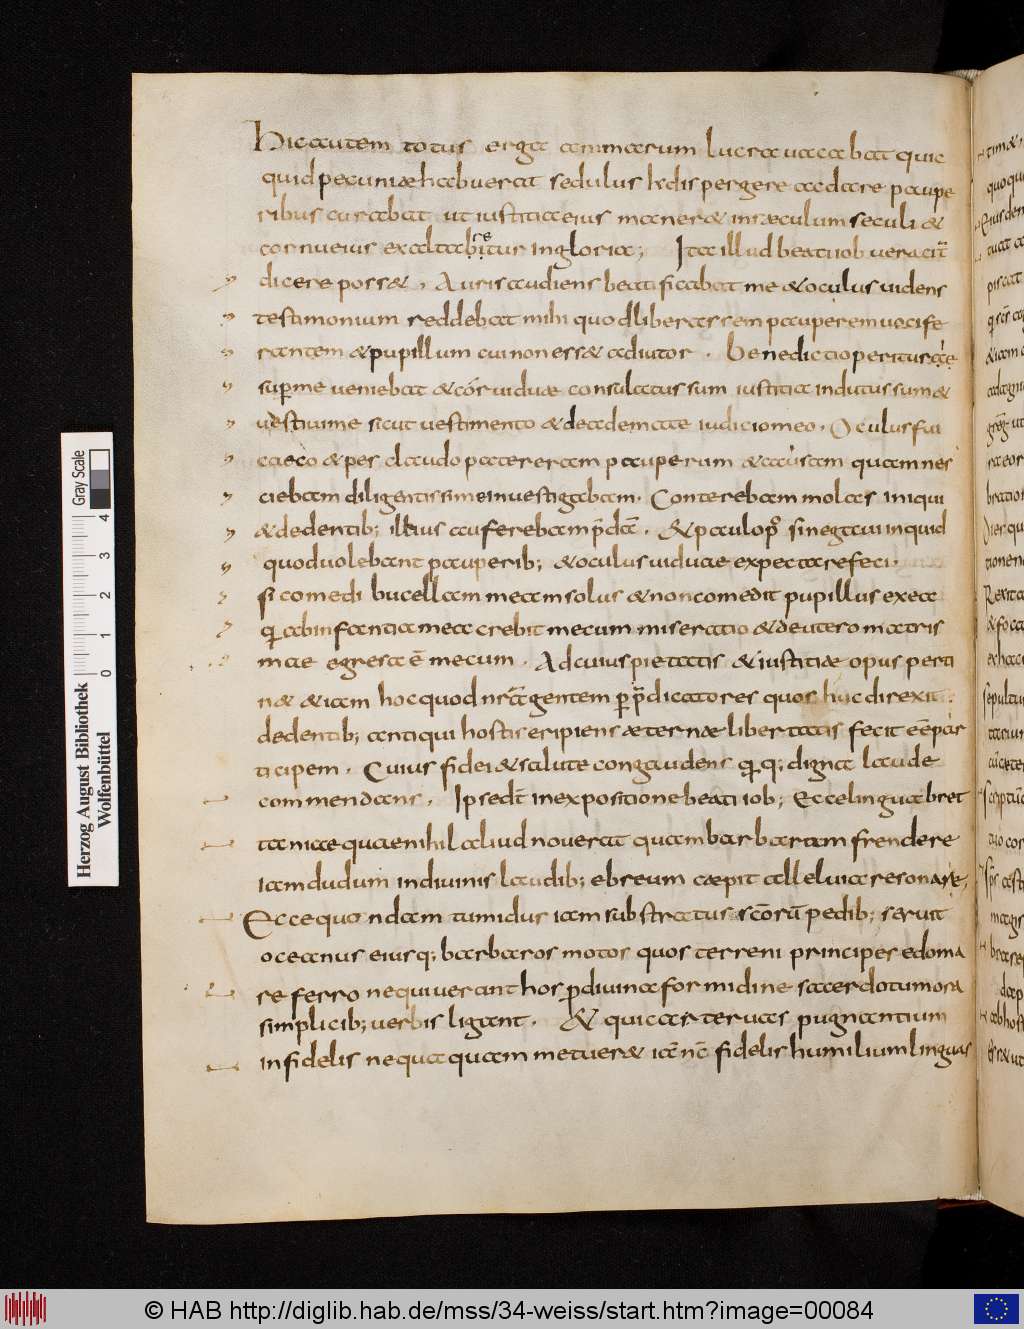 Hic autem totus erga animarum lucra uacabat quic
quid pecuniæ habuerat sedulus hęc dispergere ac dare paupe
ribus curabat ut iustitia eius maner& in sæculum seculi &
cornu eius exaltabitur in gloria; Ita illud beati iob
dicere poss&. Auris audiens beatificabat me & oculus uidens
testimonium reddebat mihi quod liberassem pauperem uocife
rantem & pupillum cui non ess& adiutor. Benedictio perituri
sup me ueniebat & cor uiduae consulatus sum iustitia indutus sum &
uestiui me sicut uestimento & deademate iudicio meo. Oculus fui
caeco & pes claudo pater eram pauperum & causam quam nes
ciebam diligentissime inuestigabam. Conterebam molas iniqui
& de dentib; illius auferebam p̄dā. & paulo p⁹ si negaui inquid
quod uolebant pauperib; & oculus uiduae expectare feci.
si comedi bucellam meam solus & non comedit pupillus ex ea
q̄ ab infantia mea crebit mecum miseratio & de utero matris
mae egresa ē mecum. Ad cuius pietatis & iustitiæ opus perti
n& & iam hoc quod nr̄ā gentem p p̄dicatores quos huc direxit
de dentib; antiqui hostis eripiens æternæ libertatis fecit eē par
ticipem. Cuius fidei & salute congaudens q̄q; digna laude
commendans. Ipse dt̄ in expositione beati iob; Ecce lingua bret
taniae quae nihil aliud nouerat quam barbaram frendere
iam dudum in diuinis laudib; ebreum cæpit alleluia resonare,
Ecce quondam tumidus iam substratus sc̄orū pedib; seruit
oceanus eiusq; barbaros motos quos terreni principes edoma
re ferro nequiuerant hos p diuina formidine sacerdotum ora
simplicib; uerbis ligant. & qui cateruas pugnantium
infidelis nequaquam metuer& iā nc̄ fidelis humilium linguas
Herzog August Bibliothek
Wolfenbüttel
Gray Scale
0 1 2 3 4
© HAB http://diglib.hab.de/mss/34-weiss/start.htm?image=00084